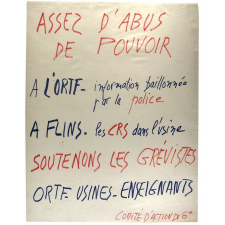 ASSEZ D'ABUS
DE POUVOIR
A L'ORTF - information baillonnée
par la police
A FLINS - les CRS dans l'usine
SOUTENONS LES GRÉVISTES
ORTF USINES - ENSEIGNANTS
COMITÉ D'ACTION DU 6e